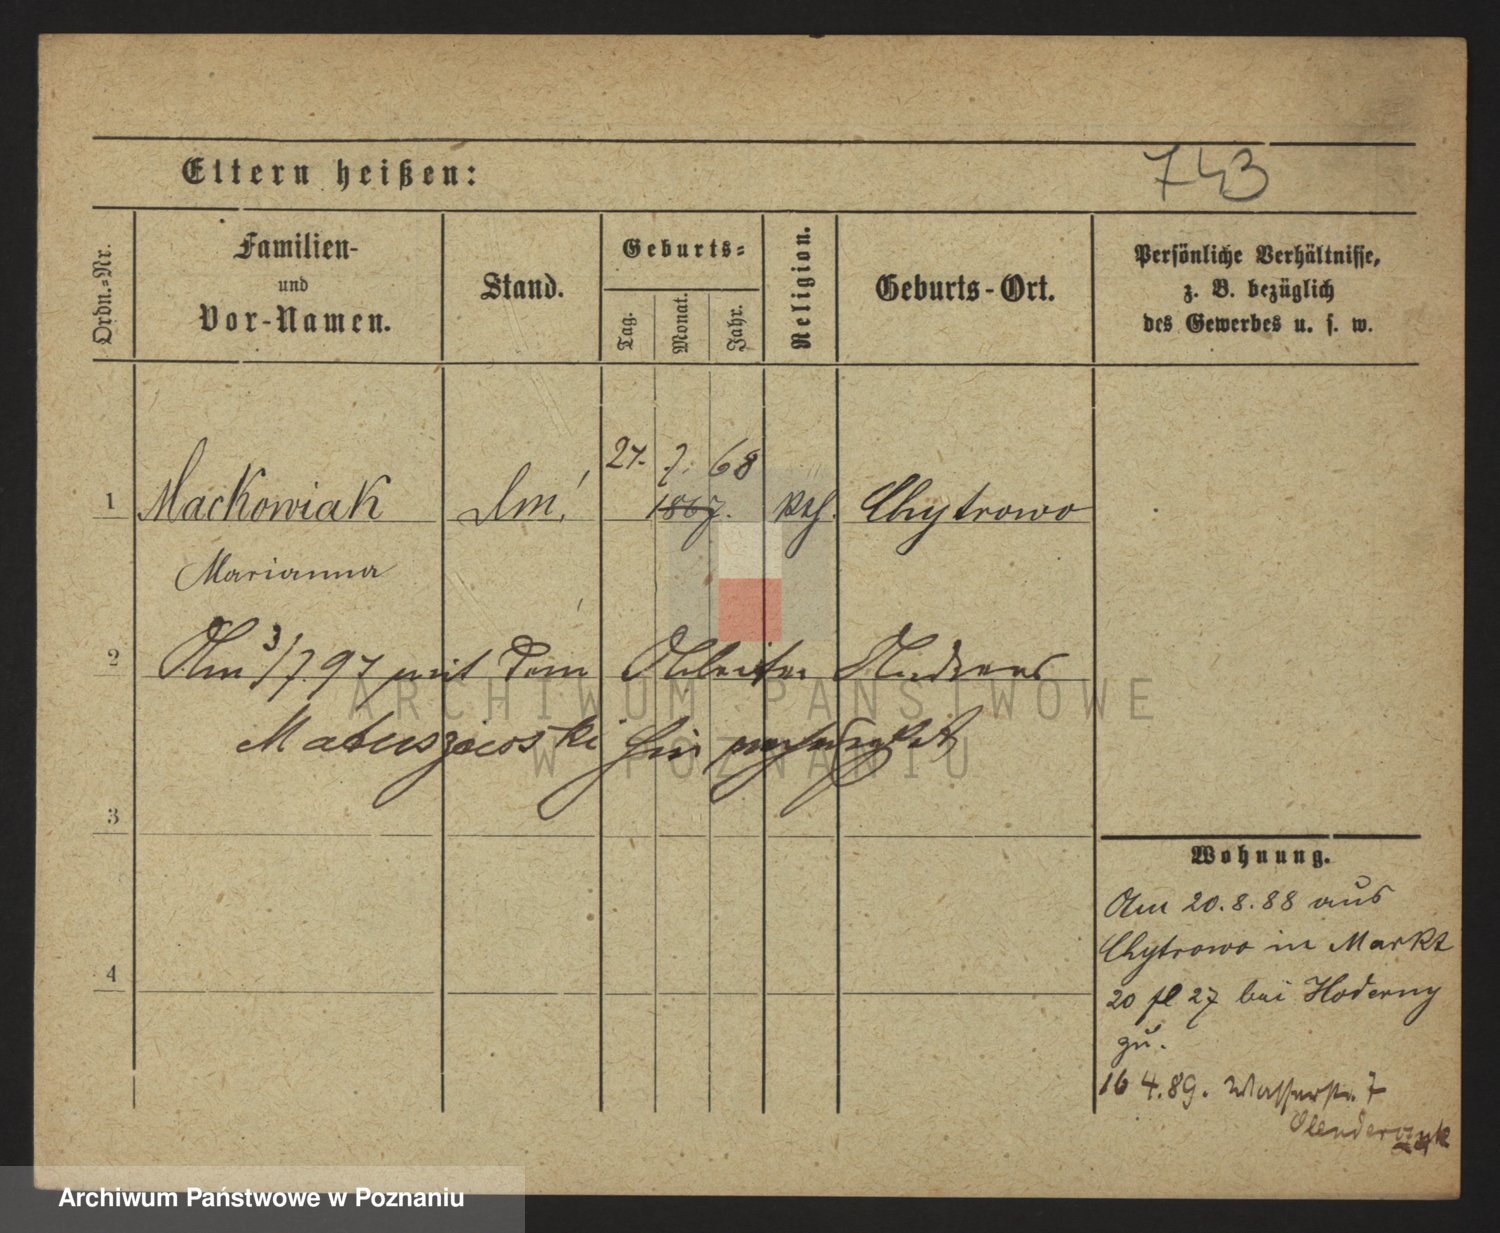 Eltern heißen:
743
Ordn.-Nr.
Familien-
und
Vor-Namen.
Stand.
Geburts-
Tag.
Monat.
Jahr.
Religion.
Geburts-Ort.
Persönliche Verhältnisse,
z. B. bezüglich
des Gewerbes u. s. w.
27. 7. 68
1 Mackowiak 1867. kth. Chytrowo
Marianna
2 Am 3/7.97 mit dem Arbeiter Andreas
Matuszewski hier
3
4
Wohnung.
Am 20.8.88 aus
Chytrowo in Markt
20 fl 27 bei Hoderny
zu.
16 4.89. Wasserstr. 7
ARCHIWUM PAŃSTWOWE
W POZNANIU
Archiwum Państwowe w Poznaniu